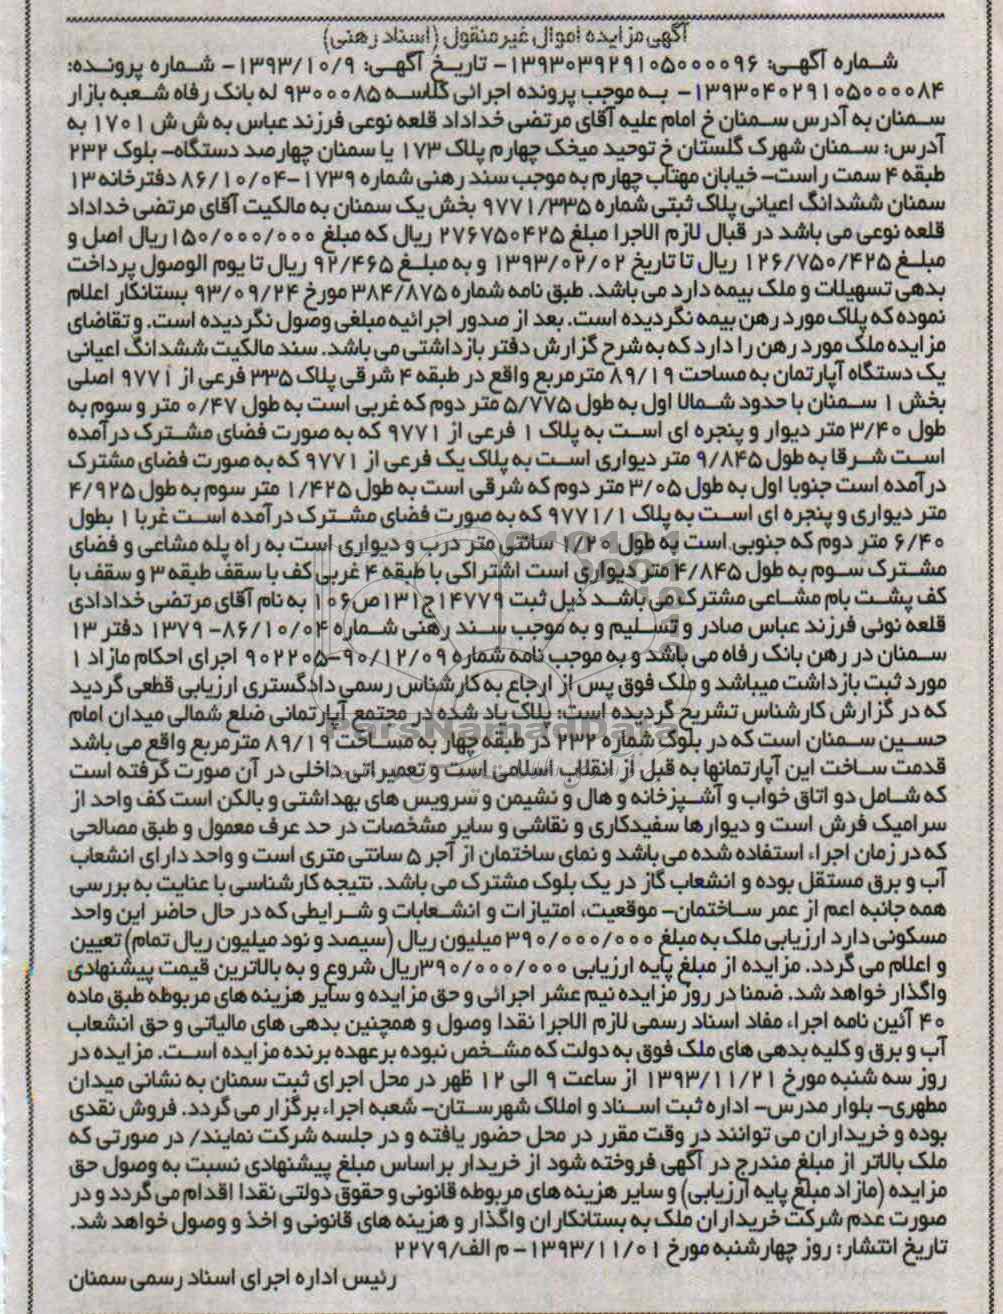 آگهی مزایده اموال غیرمنقول (اسناد رهنی)
شماره آگهی: ۱۳۹۳۰۳۹۲۹۱۰۵۰۰۰۰۹۶- تاریخ آگهی: ۱۳۹۳/۱۰/۹- شماره پرونده:
۱۳۹۳۰۴۰۲۹۱۰۵۰۰۰۰۸۴- به موجب پرونده اجرائی کلاسه ۹۳۰۰۰۸۵ له بانک رفاه شعبه بازار
سمنان به آدرس سمنان خ امام علیه آقای مرتضی خداداد قلعه نوعی فرزند عباس به ش ش ۱۷۰۱ به
آدرس: سمنان شهرک گلستان خ توحید میخک چهارم پلاک ۱۷۳ یا سمنان چهارصد دستگاه- بلوک ۲۳۲
طبقه ۴ سمت راست- خیابان مهتاب چهارم به موجب سند رهنی شماره ۱۷۳۹-۸۶/۱۰/۰۴ دفترخانه ۱۳
سمنان ششدانگ اعیانی پلاک ثبتی شماره ۹۷۷۱/۳۳۵ بخش یک سمنان به مالکیت آقای مرتضی خداداد
قلعه نوعی می باشد در قبال لازم الاجرا مبلغ ۲۷۶۷۵۰۴۲۵ ریال که مبلغ ۱۵۰/۰۰۰/۰۰۰ریال اصل و
مبلغ ۱۲۶/۷۵۰/۴۲۵ ریال تا تاریخ ۱۳۹۳/۰۲/۰۲ و به مبلغ ۹۲/۴۶۵ ریال تا یوم الوصول پرداخت
بدهی تسهیلات و ملک بیمه دارد می باشد. طبق نامه شماره ۳۸۴/۸۷۵ مورخ ۹۳/۰۹/۲۴ بستانکار اعلام
نموده که پلاک مورد رهن بیمه نگردیده است. بعد از صدور اجرائیه مبلغی وصول نگردیده است. و تقاضای
مزایده ملک مورد رهن را دارد که به شرح گزارش دفتر بازداشتی می باشد. سند مالکیت ششدانگ اعیانی
یک دستگاه آپارتمان به مساحت ۸۹/۱۹ مترمربع واقع در طبقه ۴ شرقی پلاک ۳۳۵ فرعی از ۹۷۷۱ اصلی
بخش ۱ سمنان با حدود شمالا اول به طول ۵/۷۷۵ متر دوم که غربی است به طول ۰/۴۷ متر و سوم به
طول ۳/۴۰ متر دیوار و پنجره ای است به پلاک ۱ فرعی از ۹۷۷۱ که به صورت فضای مشترک درآمده
است شرقا به طول ۹/۸۴۵ متر دیواری است به پلاک یک فرعی از ۹۷۷۱ که به صورت فضای مشترک
درآمده است جنوبا اول به طول ۳/۰۵ متر دوم که شرقی است به طول ۱/۴۲۵ متر سوم به طول ۴/۹۲۵
متر دیواری و پنجره ای است به پلاک ۹۷۷۱/۱ که به صورت فضای مشترک درآمده است غربا ۱ بطول
۶/۴۰ متر دوم که جنوبی است به طول ۱/۲۰ سانتی متر درب و دیواری است به راه پله مشاعی و فضای
مشترک سوم به طول ۴/۸۴۵ متر دیواری است اشتراکی با طبقه ۴ غربی کف با سقف طبقه ۳ و سقف با
کف پشت بام مشاعی مشترک می باشد ذیل ثبت ۱۴۷۷۹ج۱۳۱ص۱۰۶ به نام آقای مرتضی خدادادی
قلعه نوئی فرزند عباس صادر و تسلیم و به موجب سند رهنی شماره ۸۶/۱۰/۰۴- ۱۳۷۹ دفتر ۱۳
سمنان در رهن بانک رفاه می باشد و به موجب نامه شماره ۹۰/۱۲/۰۹-۹۰۲۲۰۵ اجرای احکام مازاد ۱
مورد ثبت بازداشت میباشد و ملک فوق پس از ارجاع به کارشناس رسمی دادگستری ارزیابی قطعی گردید
که در گزارش کارشناس تشریح گردیده است: پلاک یاد شده در مجتمع آپارتمانی ضلع شمالی میدان امام
حسین سمنان است که در بلوک شماره ۲۳۲ در طبقه چهار به مساحت ۸۹/۱۹ مترمربع واقع می باشد
قدمت ساخت این آپارتمانها به قبل از انقلاب اسلامی است و تعمیراتی داخلی در آن صورت گرفته است
که شامل دو اتاق خواب و آشپزخانه و هال و نشیمن و سرویس های بهداشتی و بالکن است کف واحد از
سرامیک فرش است و دیوارها سفیدکاری و نقاشی و سایر مشخصات در حد عرف معمول و طبق مصالحی
که در زمان اجراء استفاده شده می باشد و نمای ساختمان از آجر ۵ سانتی متری است و واحد دارای انشعاب
آب و برق مستقل بوده و انشعاب گاز در یک بلوک مشترک می باشد. نتیجه کارشناسی با عنایت به بررسی
همه جانبه اعم از عمر ساختمان- موقعیت، امتیازات و انشعابات و شرایطی که در حال حاضر این واحد
مسکونی دارد ارزیابی ملک به مبلغ ۳۹۰/۰۰۰/۰۰۰ میلیون ریال (سیصد و نود میلیون ریال تمام) تعیین
و اعلام می گردد. مزایده از مبلغ پایه ارزیابی ۳۹۰/۰۰۰/۰۰۰ریال شروع و به بالاترین قیمت پیشنهادی
واگذار خواهد شد. ضمنا در روز مزایده نیم عشر اجرائی و حق مزایده و سایر هزینه های مربوطه طبق ماده
۴۰ آئین نامه اجراء مفاد اسناد رسمی لازم الاجرا نقدا وصول و همچنین بدهی های مالیاتی و حق انشعاب
آب و برق و کلیه بدهی های ملک فوق به دولت که مشخص نبوده برعهده برنده مزایده است. مزایده در
روز سه شنبه مورخ ۱۳۹۳/۱۱/۲۱ از ساعت ۹ الی ۱۲ ظهر در محل اجرای ثبت سمنان به نشانی میدان
مطهری- بلوار مدرس- اداره ثبت اسناد و املاک شهرستان- شعبه اجراء برگزار می گردد. فروش نقدی
بوده و خریداران می توانند در وقت مقرر در محل حضور یافته و در جلسه شرکت نمایند/ در صورتی که
ملک بالاتر از مبلغ مندرج در آگهی فروخته شود از خریدار براساس مبلغ پیشنهادی نسبت به وصول حق
مزایده (مازاد مبلغ پایه ارزیابی) و سایر هزینه های مربوطه قانونی و حقوق دولتی نقدا اقدام می گردد و در
صورت عدم شرکت خریداران ملک به بستانکاران واگذار و هزینه های قانونی و اخذ و وصول خواهد شد.
تاریخ انتشار: روز چهارشنبه مورخ ۱۳۹۳/۱۱/۰۱- م الف/۲۲۷۹
رئیس اداره اجرای اسناد رسمی سمنان
ParsNamadData